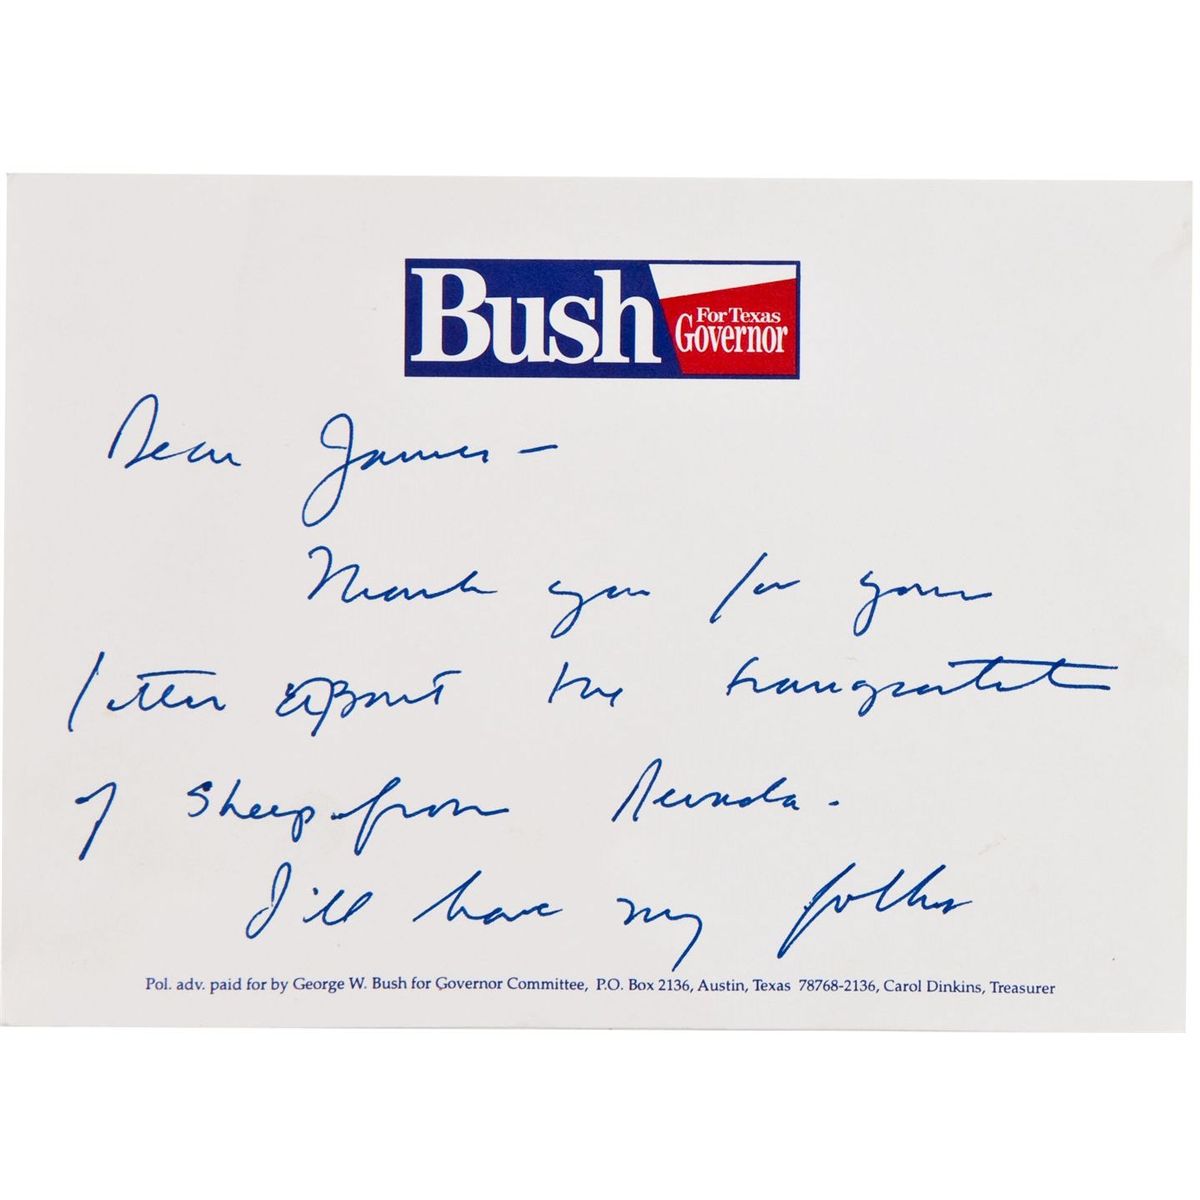 Bush
For Texas
Governor
Dear James -
Thank you for your
letter about the
of sheep from Nevada.
I'll have my folks
Pol. adv. paid for by George W. Bush for Governor Committee, P.O. Box 2136, Austin, Texas 78768-2136, Carol Dinkins, Treasurer